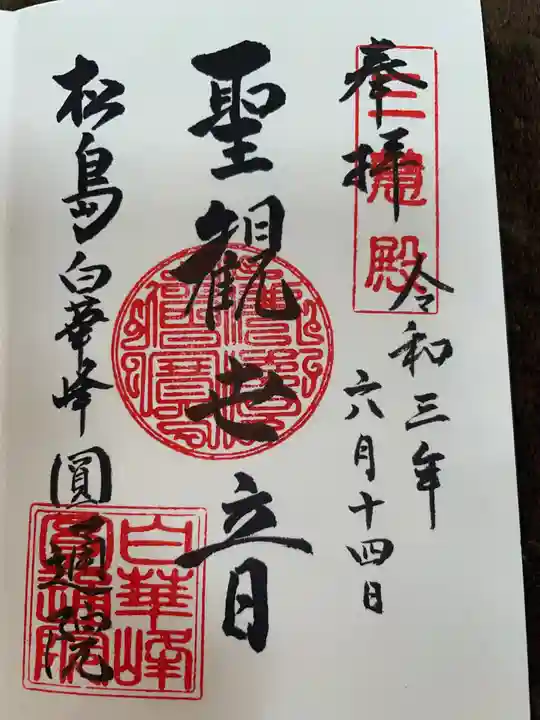 奉拝
三慧殿
令和三年
六月十四日
聖観世音
松島白華峰圓通院
白華峰
圓通院